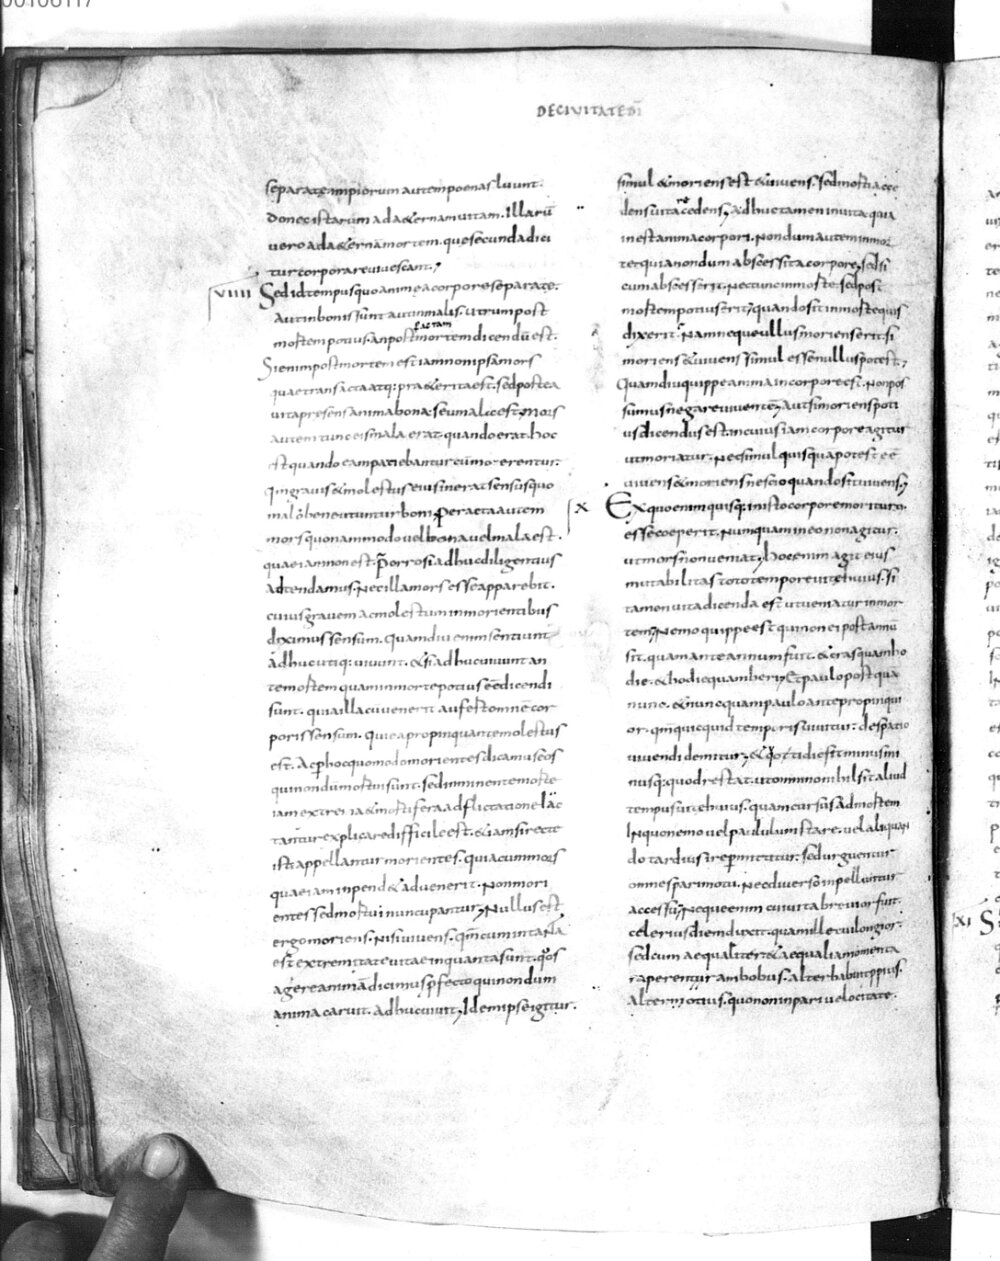 00106117
DECIUITATE DĪ
separatę. impiorum autem poenas luunt.
donec istarum ad aeternam uitam. illarū
uero ad aeternā mortem. que secunda dici
tur corpora reuiuescant;
VIIII Sed id tempus quo anime a corpore separate.
aut in bonis sunt aut in malis. utrum post
mortem potius. an post mortem dicendū est.
factam
Si enim post mortem est iam non ipsa mors
quae transacta atq; praeterita est. sed post ea
uita presens anima bona seu mala est. Mors
autem tunc eis mala erat. quando erat. hoc
est quando eam patiebantur cum morerentur.
qm grauis & molestus eius inerat sensus quo
malo bene utuntur boni. Peracta autem
mors quonam modo uel bona uel mala est.
quae iam non est. Porro si adhuc diligentius
adtendamus. Nec illa mors esse apparebit.
cuius grauem ac molestum in morientibus
diximus sensum. quamdiu enim sentiunt
adhuc utiq; uiuunt. & si adhuc uiuunt an
te mortem quam in morte potius eē dicendi
sunt. quia illa cum uenerit aufert omnē cor
poris sensum. qui ea propinquante molestus
est. Ac phoc quomodo morientes dicamus eos
qui nondū mortui sunt. sed imminente morte
iam extrema & mortifera adflictatione iac
tantur explicare difficile est. & iam si recte
isti appellantur morientes. quia cum mors
quae iam inpend& aduenerit. Non mori
entes sed mortui nuncupantur; Nullus est
ergo moriens. nisi uiuens. qm cum in tanta
est extremitate uitae in quanta sunt. quos
agere animā dicimus pfecto qui nondum
anima caruit. adhuc uiuit; Idem ipse igitur.
simul & moriens est & uiuens. sed morti acce
dens uita cedens; adhuc tamen in uita quia
inest anima corpori. nondum autem in mor
te quia nondum abscessit a corpore; sed si
cum abscesserit. nec tunc in morte. sed post
mortem potius erit; quando sit in morte quis
dixerit; Nam neque ullus moriens erit. si
moriens & uiuens simul esse nullus potest;
Quamdiu quippe anima in corpore est. non pos
sumus negare uiuentē; aut si moriens poti
us dicendus est in cuius iam corpore agitur
ut moriatur. nec simul quisquā potest eē
uiuens & moriens nescio quando sit uiuens;
X Ex quo enim quisq; in isto corpore morituro.
esse coeperit. numquam in eo non agitur.
ut mors non ueniat; hoc enim agit eius
mutabilitas toto tempore uitę huius. si
tamen uita dicenda est ut ueniatur in mor
tem; Nemo quippe est qui non ei post annū
sit. quam ante annum fuit. & cras quam ho
die. & hodie quam heri; Et paulo post quā
nunc. & nunc quam paulo ante propinqui
or. qm quicquid temporis uiuitur. de spatio
uiuendi demitur; & cotidie fit minus mi
nusq; quod restat. ut omnino nihil sit aliud
tempus uitę huius. quam cursus ad mortem
In quo nemo uel paululum stare. uel aliquan
do tardius ire permittitur. sed urguentur
omnes pari motu. Nec diuerso inpelluntur
accessu; Neque enim cui uita breuior fuit.
celerius diem duxit. quam ille cui longior.
sed cum aequaliter & aequalia momenta
raperentur ambobus. alter habuit ppius.
alter remotius. quo non inpari uelocitate.
XI S